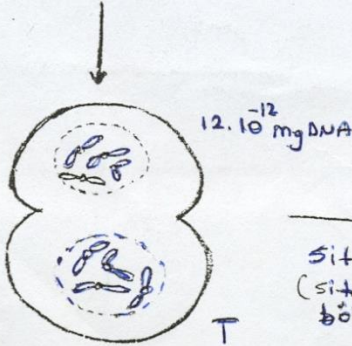 12.10⁻¹² mg DNA
sit
(sit
bö
T